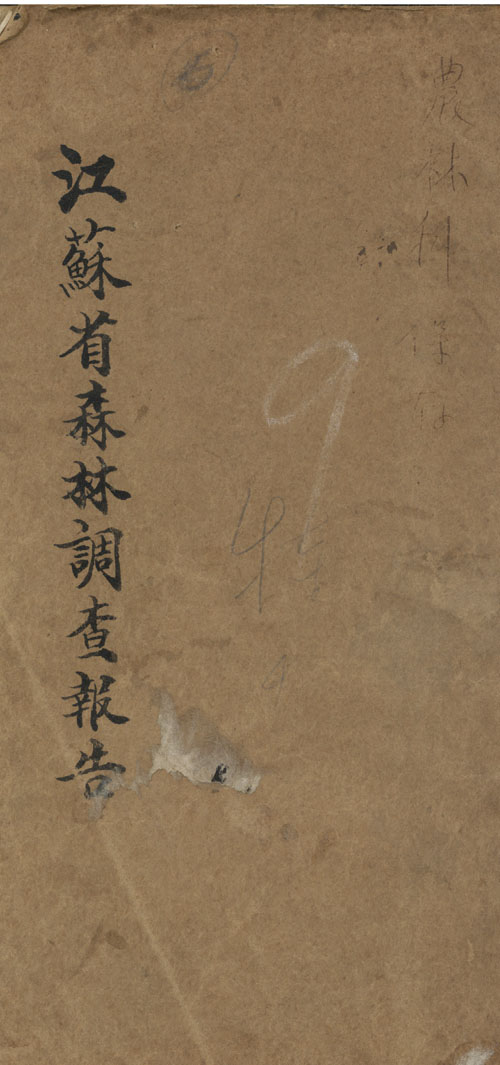 農林科保存
9
江蘇省森林調查報告